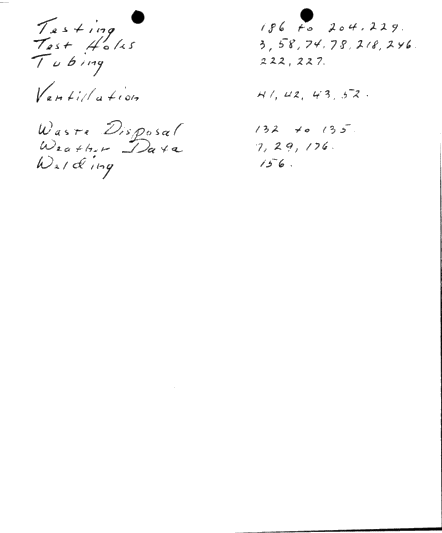 Testing 186 to 204, 229.
Test Holes 3, 58, 74, 78, 218, 246.
Tubing 222, 227.
Ventillation 41, 42, 43, 52.
Waste Disposal 132 to 135.
Weather Data 7, 29, 176.
Welding 156.